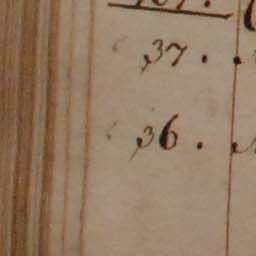 37.
36.